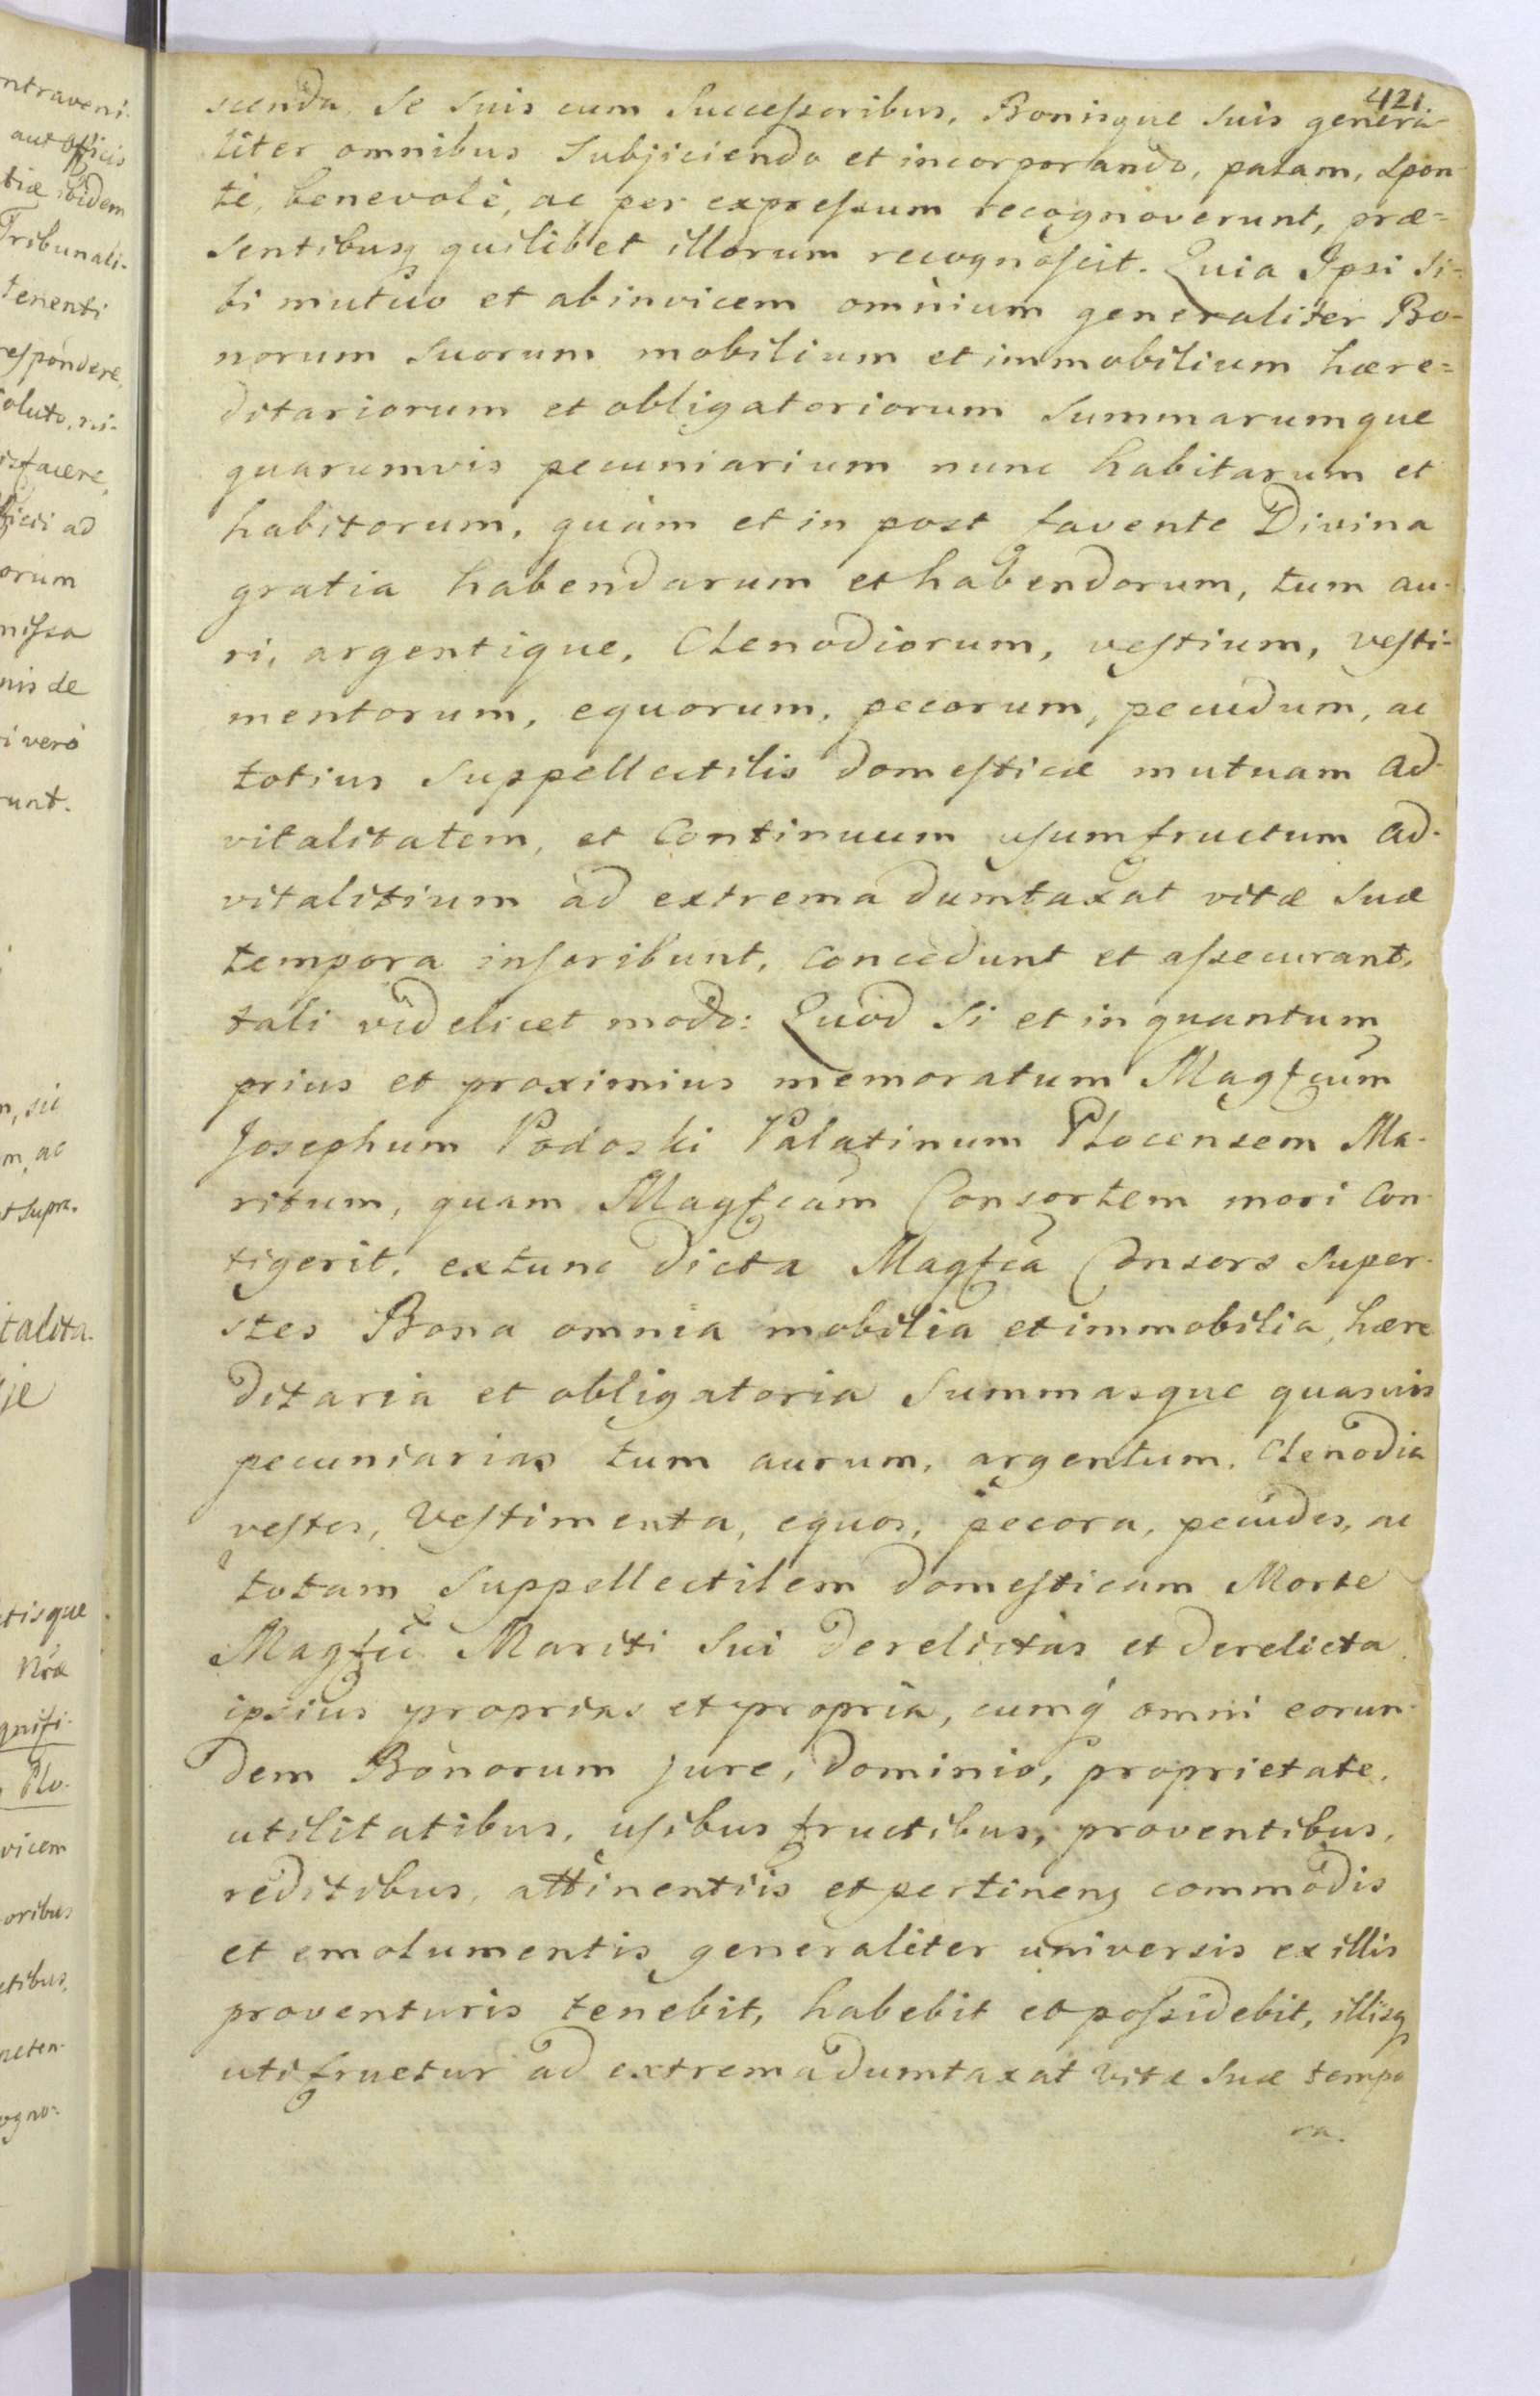 421.
scendo Se Suis cum Successoribus, Bonisque Suis genera-
liter omnibus Subjiciendo et incorporando, palam, spon-
tè, benevolè, ac per expressum recognoverunt, præ=
sentibusq quilibet illorum recognoscit. Quia Ipsi Si=
bi mutuo et abinvicem omnium generaliter Bo=
norum Suorum mobilium et immobilium hære=
ditariorum et obligatoriorum Summarumque
quarumvis pecuniarium nunc habitarum et
habitorum, quàm et in post favente Divina
gratia habendarum et habendorum, tum au-
ri, argentique, Clenodiorum, vestium, vesti-
mentorum, equorum, pecorum, pecudum, ac
totius Suppellectilis domesticæ mutuam ad-
vitalitatem, et Continuum usumfructum ad-
vitalitium ad extrema dumtaxat vitæ Suæ
tempora inscribunt, concedunt et assecurant,
tali videlicet modo: Quod Si et in quantum
prius et proximius memoratum Magfcum
Josephum Podoski Palatinum Plocensem Ma-
ritum, quam Magfcam Consortem mori Con-
tigerit, extunc dicta Magfca Consors Super-
stes Bona omnia mobilia et immobilia, hære
ditaria et obligatoria Summasque quasvis
pecuniarias tum aurum, argentum, Clenodia
vestes, Vestimenta, equos, pecora, pecudes, ac
totam Suppellectilem domesticam Morte
Magfci Mariti Sui derelictas et derelicta
ipsius proprias et propria, cumq́ omni eorun-
dem Bonorum jure, dominio, proprietate,
utilitatibus, usibus fructibus, proventibus,
reditibus, attinentiis et pertinenȝ commodis
et emolumentis generaliter universis ex illis
proventuris tenebit, habebit et possidebit, illisq
utifruetur ad extrema dumtaxat vitæ Suæ tempo
ra.